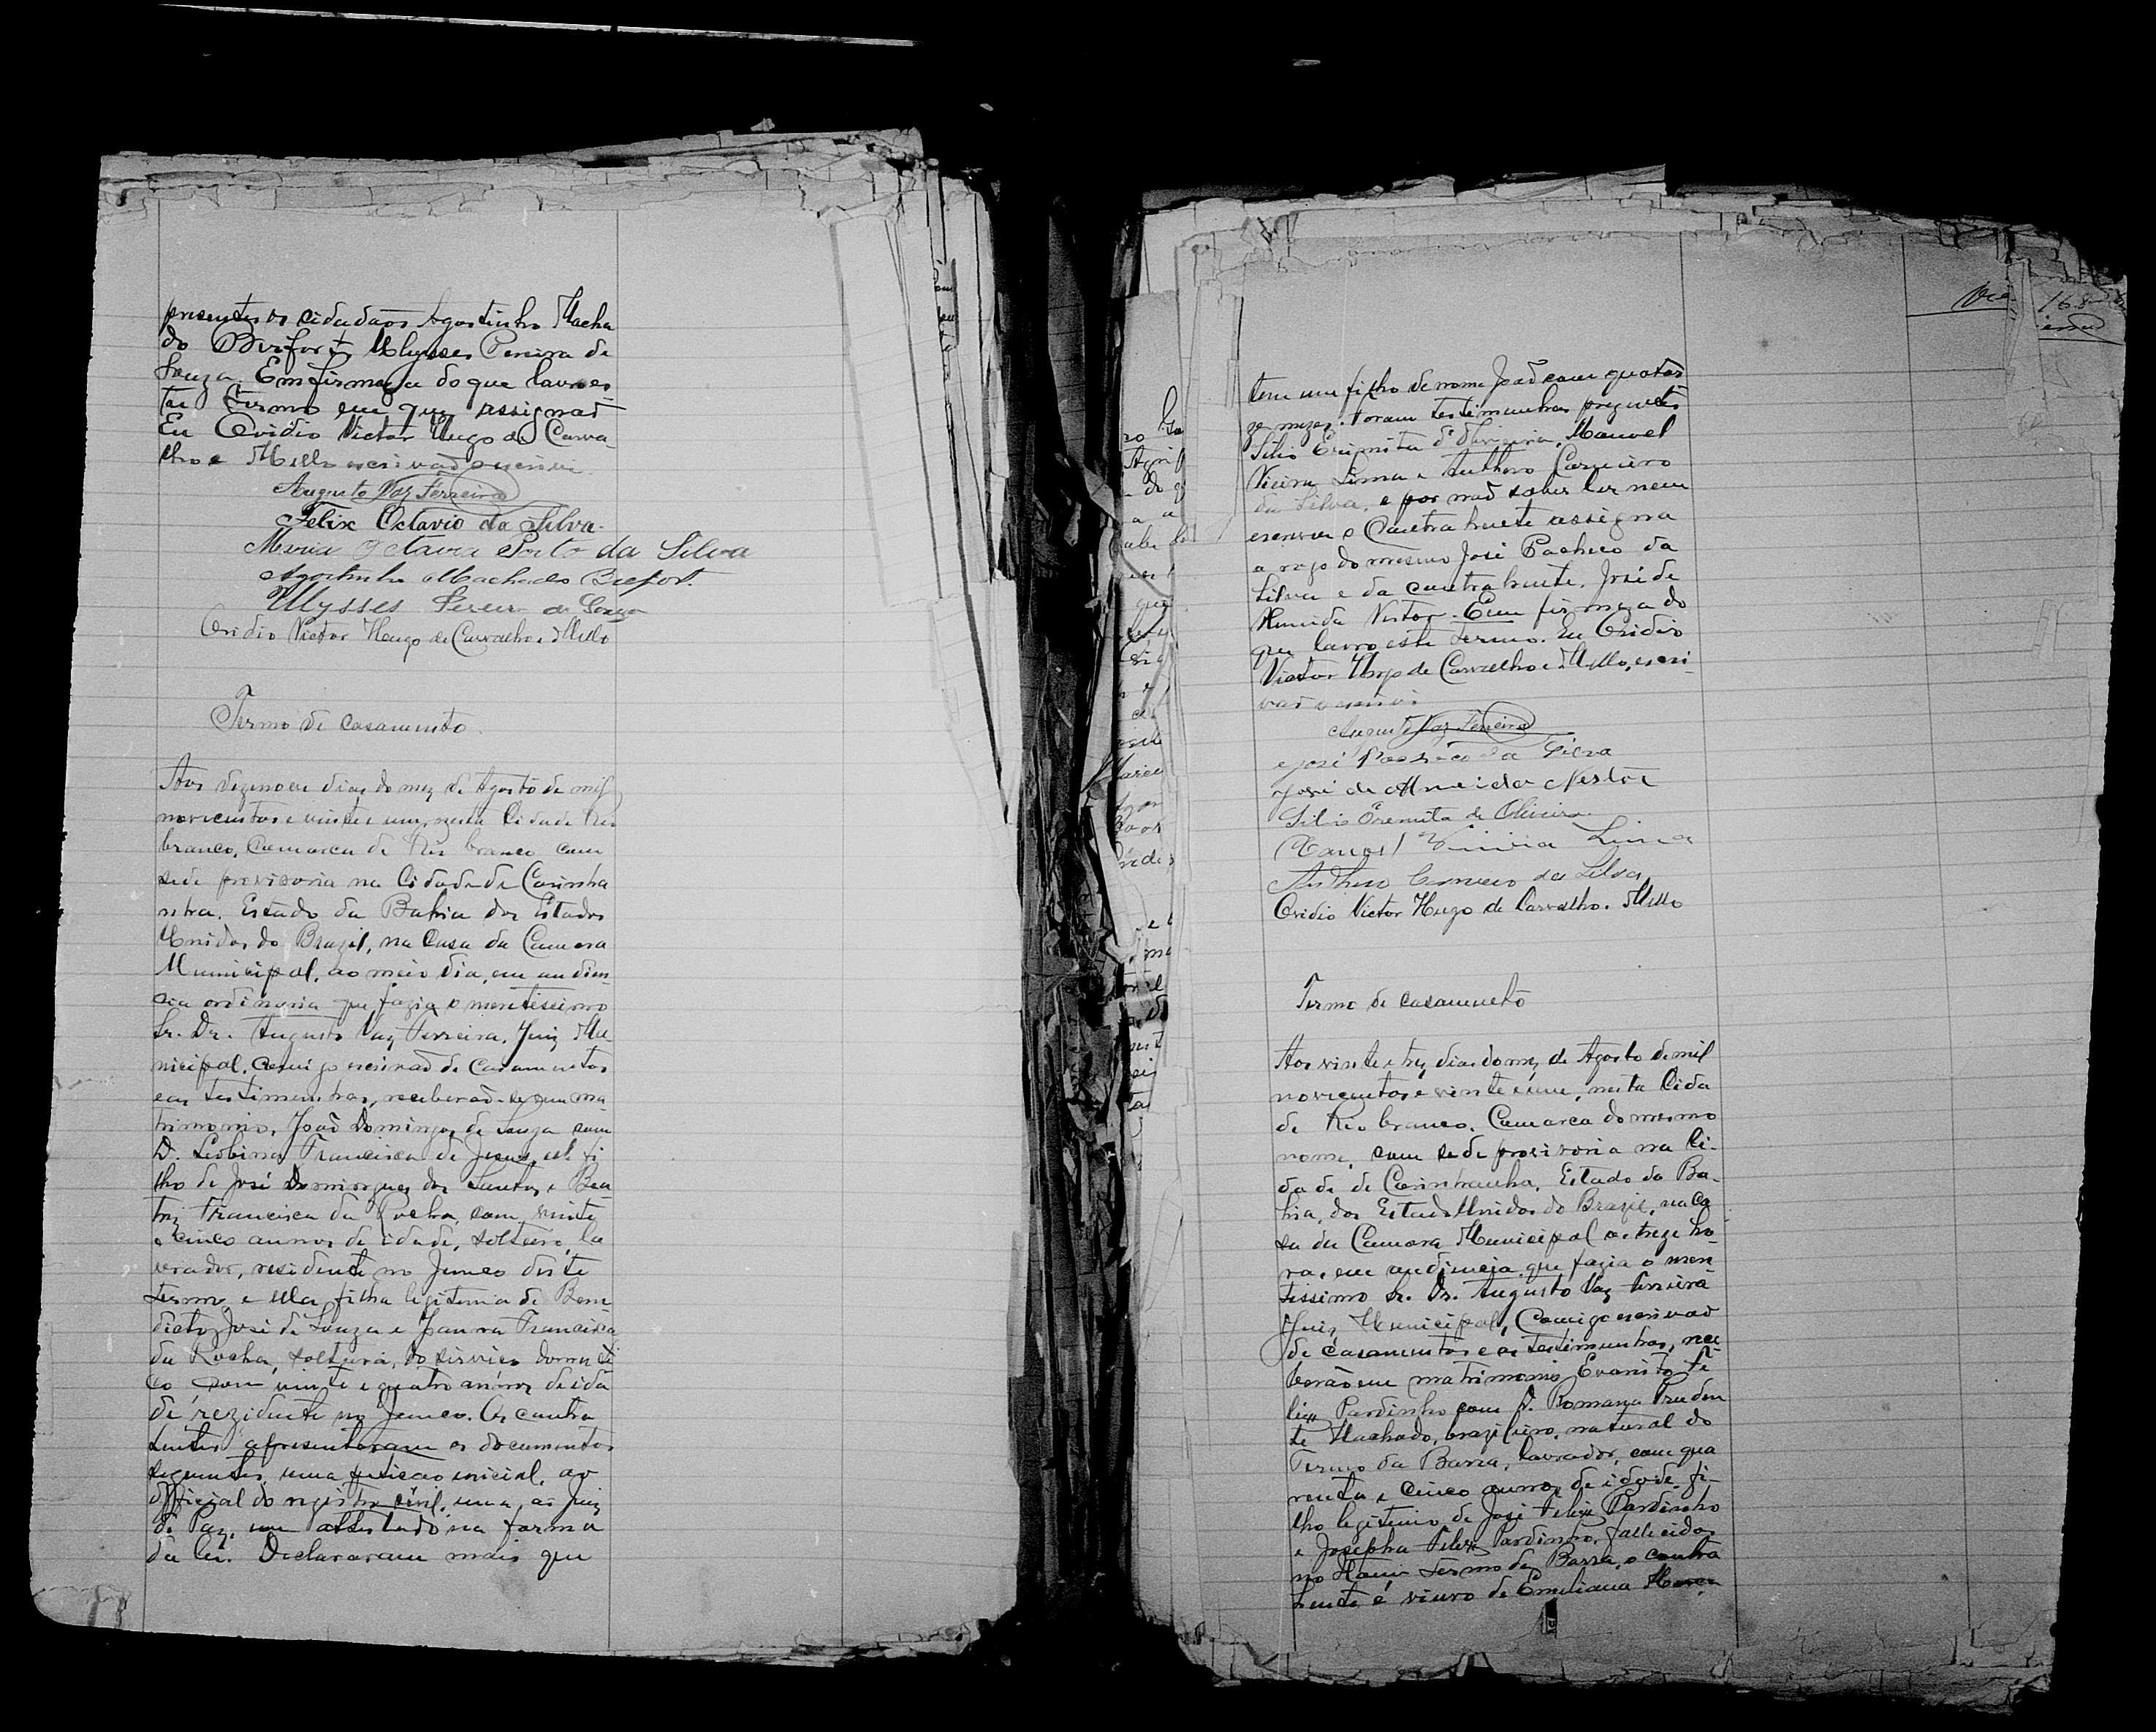 presentes os cidadaos Agostinho Macha
do Brefort, Ulysses Pereira de
Souza. Em firmeza do que lavro es-
te termo em que assignaõ
Eu Ovidio Victor Hugo de Carva-
lho e Mello escrivaõ escrevi.
Augusto Vaz Ferreira
Felix Octavio da Silva
Maria Octavia Porto da Silva
Agostinho Machado Brefort.
Ulysses Pereira de Souza
Ovidio Victor Hugo de Carvalho e Mello
Termo de casamento.
Aos dezenove dias do mez de Agosto de mil
novecentos e vinte e um, nesta Cidade Rio
branco, Comarca de Rio branco com
sede provisoria na Cidade de Carinha
nha, Estado da Bahia dos Estados
Unidos do Brazil, na Casa da Camara
Municipal, ao meio dia, em audien
cia ordinaria que fazia o meretissimo
Sr. Dr. Augusto Vaz Ferreira, Juiz Mu
nicipal, comigo escrivaõ de Casamentos
e as testimunhas, receberaõ-se em ma-
trimonio, Joaõ Domingos de Souza com
D. Leobina Francisca de Jesus, elle fi
lho de José Domingues dos Santos e Bea
triz Francisca da Rocha, com vinte
e cinco annos de idade, solteiro, la
vrador, residente no Junco deste
termo e ella filha legitima de Bene
dicto José de Souza e Francisca
da Rocha, solteira, do serviço domesti
co com vinte e quatro annos de ida
de, rezidente no Junco. Os contra
hentes apresentaram os documentos
seguintes, uma petição inicial, ao
official do registro civil, uma, ao Juiz
de Paz, um attestado na forma
da lei. Declararam mais que
tem um filho de nome Joaõ com quator
ze mezes. Foram testimunhas prezentes
Silio Eremita d'Oliveira, Manoel
Vieira Lima e Anthero Carneiro
da Silva, e por naõ saber ler nem
escrever o Contrahente assigna
a rogo do mesmo José Pacheco da
Silva e da contrahente, José de
Almeida Nestor. Em firmeza do
que lavro este termo. Eu Ovidio
Victor Hugo de Carvalho e Mello, escri-
vaõ escrevi
Augusto Vaz Ferreira
José Pacheco da Silva
José de Almeida Nestor
Silio Eremita de Oliveira
Manoel Vieira Lima
Anthero Carneiro da Silva
Ovidio Victor Hugo de Carvalho e Mello
Termo de casamento
Aos vinte e trez dias do mez de Agosto de mil
novecentos e vinte e um, nesta Cida
de Rio branco, Comarca do mesmo
nome, com sede provisoria na Ci-
dade de Carinhanha, Estado da Ba-
hia, dos Estados Unidos do Brazil, na Ca
sa da Camara Municipal as treze ho-
ras, em audiencia que fazia o mere
tissimo Sr. Dr. Augusto Vaz Ferreira
Juiz Municipal, Comigo escrivaõ
de Casamentos e as testimunhas, rece
beraõ em matrimonio, Evaristo Fe-
lix Pardinho com D. Romana Pruden
te Machado, brazileiro, natural do
Termo da Barra, lavrador, com qua
renta e cinco annos de idade, fi-
lho legitimo de José Felix Pardinho
e Josepha Felix Pardinho, fallecidos
no termo da Barra, o contra
hente é viuvo de Emiliana